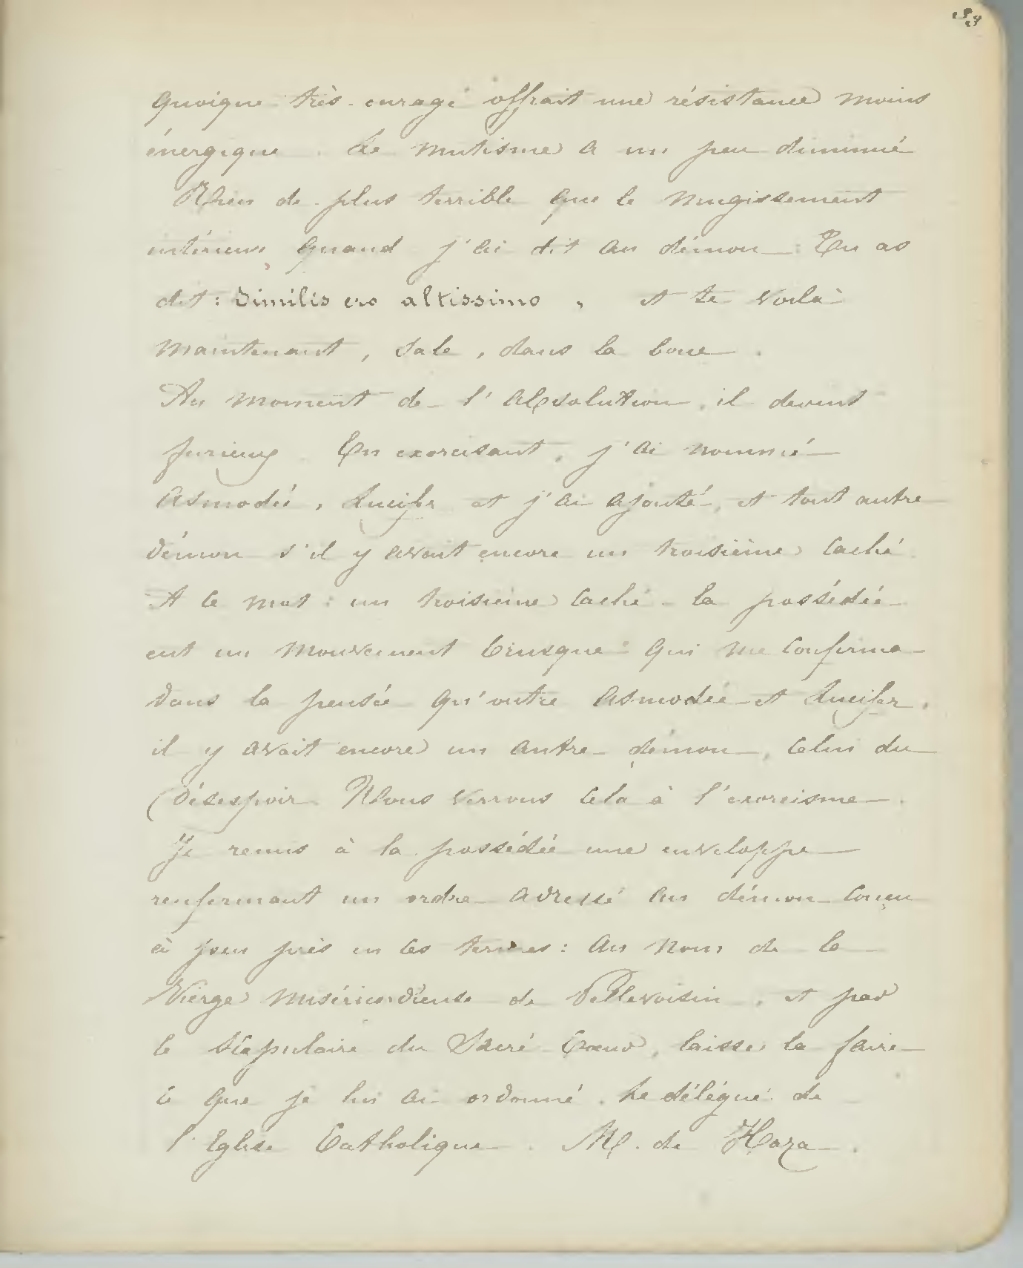 83
quoique très-enragé offrait une résistance moins
énergique. Le mutisme a un peu diminué
Rien de plus terrible que le mugissement
intérieur, quand j'ai dit au démon : Tu as
dit : Similis ero altissimo, et te voilà
maintenant, sale, dans la boue.
Au moment de l'absolution, il devint
furieux. En exorcisant, j'ai nommé
Asmodée, Lucifer et j'ai ajouté, et tout autre
démon s'il y avait encore un troisième caché.
A ce mot : un troisième caché - la possédée
eut un mouvement brusque qui me confirma
dans la pensée qu'outre Asmodée et Lucifer,
il y avait encore un autre démon, celui du
Désespoir. Nous verrons cela à l'exorcisme.
Je remis à la possédée une enveloppe
renfermant un ordre adressé au démon conçu
à peu près en ces termes : Au nom de la
Vierge miséricordieuse de Pellevoisin, et par
le Scapulaire du Sacré-Cœur, laisse la faire
ce que je lui ai ordonné. Le délégué de
l'Eglise Catholique. M. de Haza.